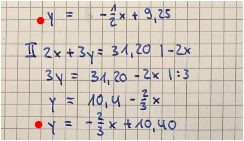 y = -1/2x + 9,25
II 2x + 3y = 31,20 | -2x
3y = 31,20 - 2x | :3
y = 10,4 - 2/3x
y = -2/3x + 10,40